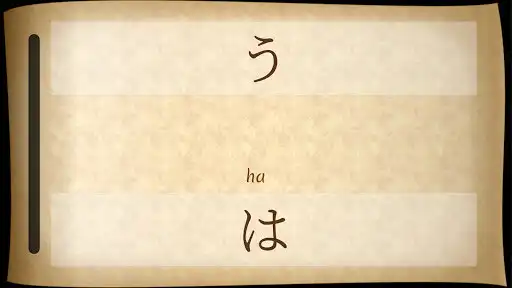 う
ha
は